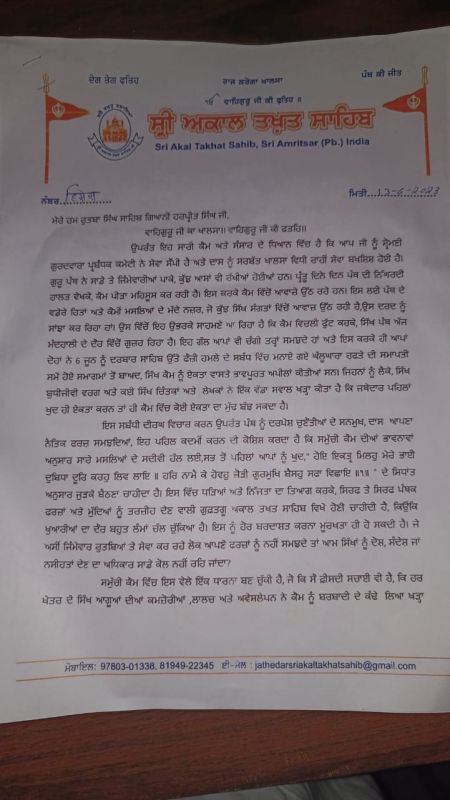 ਦੇਗ ਤੇਗ ਫਤਿਹ
ਰਾਜ ਕਰੇਗਾ ਖਾਲਸਾ
ਪੰਥ ਕੀ ਜੀਤ
ੴ ਵਾਹਿਗੁਰੂ ਜੀ ਕੀ ਫਤਿਹ ॥
ਸ੍ਰੀ ਅਕਾਲ ਤਖ਼ਤ ਸਾਹਿਬ
Sri Akal Takhat Sahib, Sri Amritsar (Pb.) India
ਨੰਬਰ
ਮਿਤੀ....13-6-2023
ਮੇਰੇ ਹਮ ਰੁਤਬਾ ਸਿੰਘ ਸਾਹਿਬ ਗਿਆਨੀ ਹਰਪ੍ਰੀਤ ਸਿੰਘ ਜੀ,
ਵਾਹਿਗੁਰੂ ਜੀ ਕਾ ਖਾਲਸਾ॥ ਵਾਹਿਗੁਰੂ ਜੀ ਕੀ ਫਤਹਿ॥
ਉਪਰੰਤ ਇਹ ਸਾਰੀ ਕੌਮ ਅਤੇ ਸੰਸਾਰ ਦੇ ਧਿਆਨ ਵਿੱਚ ਹੈ ਕਿ ਆਪ ਜੀ ਨੂੰ ਸ਼੍ਰੋਮਣੀ
ਗੁਰਦਵਾਰਾ ਪ੍ਰਬੰਧਕ ਕਮੇਟੀ ਨੇ ਸੇਵਾ ਸੌਂਪੀ ਹੈ ਅਤੇ ਦਾਸ ਨੂੰ ਸਰਬੱਤ ਖਾਲਸਾ ਵਿਧੀ ਰਾਹੀਂ ਸੇਵਾ ਬਖਸ਼ਿਸ਼ ਹੋਈ ਹੈ।
ਗੁਰੂ ਪੰਥ ਨੇ ਸਾਡੇ ਤੇ ਜਿੰਮੇਵਾਰੀਆਂ ਪਾਕੇ, ਕੁੱਝ ਆਸਾਂ ਵੀ ਰੱਖੀਆਂ ਹੋਈਆਂ ਹਨ। ਪ੍ਰੰਤੂ ਦਿਨੋ ਦਿਨ ਪੰਥ ਦੀ ਨਿੱਘਰਦੀ
ਹਾਲਤ ਵੇਖਕੇ, ਕੌਮ ਪੀੜਾ ਮਹਿਸੂਸ ਕਰ ਰਹੀ ਹੈ। ਇਸ ਕਰਕੇ ਕੌਮ ਵਿੱਚੋਂ ਆਵਾਜ਼ੇ ਉੱਠ ਰਹੇ ਹਨ। ਇਸ ਲਈ ਪੰਥ ਦੇ
ਵਡੇਰੇ ਹਿਤਾਂ ਅਤੇ ਕੌਮੀ ਮਸਲਿਆਂ ਦੇ ਮੱਦੇ ਨਜ਼ਰ, ਜੋ ਕੁੱਝ ਸਿੱਖ ਸੰਗਤਾਂ ਵਿੱਚੋਂ ਆਵਾਜ਼ ਉੱਠ ਰਹੀ ਹੈ,ਉਸ ਦਰਦ ਨੂੰ
ਸਾਂਝਾ ਕਰ ਰਿਹਾ ਹਾਂ। ਉਸ ਵਿੱਚੋਂ ਇਹ ਉੱਭਰਕੇ ਸਾਹਮਣੇ ਆ ਰਿਹਾ ਹੈ ਕਿ ਕੌਮ ਵਿਚਲੀ ਫੁੱਟ ਕਰਕੇ, ਸਿੱਖ ਪੰਥ ਅੱਜ
ਮੰਦਹਾਲੀ ਦੇ ਦੌਰ ਵਿੱਚੋਂ ਗੁਜ਼ਰ ਰਿਹਾ ਹੈ। ਇਹ ਗੱਲ ਆਪਾਂ ਵੀ ਚੰਗੀ ਤਰ੍ਹਾਂ ਸਮਝਦੇ ਹਾਂ ਅਤੇ ਇਸ ਕਰਕੇ ਹੀ ਆਪਾਂ
ਦੋਹਾਂ ਨੇ 6 ਜੂਨ ਨੂੰ ਦਰਬਾਰ ਸਾਹਿਬ ਉੱਤੇ ਫੌਜੀ ਹਮਲੇ ਦੇ ਸਬੰਧ ਵਿੱਚ ਮਨਾਏ ਗਏ ਘੱਲੂਘਾਰਾ ਹਫਤੇ ਦੀ ਸਮਾਪਤੀ
ਸਮੇਂ ਹੋਏ ਸਮਾਗਮਾਂ ਤੋਂ ਬਾਅਦ, ਸਿੱਖ ਕੌਮ ਨੂੰ ਏਕਤਾ ਵਾਸਤੇ ਭਾਵਪੂਰਤ ਅਪੀਲਾਂ ਕੀਤੀਆਂ ਸਨ। ਜਿਹਨਾਂ ਨੂੰ ਲੈਕੇ, ਸਿੱਖ
ਬੁਧੀਜੀਵੀ ਵਰਗ ਅਤੇ ਕਈ ਸਿੱਖ ਚਿੰਤਕਾਂ ਅਤੇ ਲੇਖਕਾਂ ਨੇ ਇੱਕ ਵੱਡਾ ਸਵਾਲ ਖੜ੍ਹਾ ਕੀਤਾ ਹੈ ਕਿ ਜਥੇਦਾਰ ਪਹਿਲਾਂ
ਖੁਦ ਹੀ ਏਕਤਾ ਕਰਨ ਤਾਂ ਹੀ ਕੌਮ ਵਿੱਚ ਕੋਈ ਏਕਤਾ ਦਾ ਮੁੱਢ ਬੱਝ ਸਕਦਾ ਹੈ।
ਇਸ ਸਬੰਧੀ ਦੀਰਘ ਵਿਚਾਰ ਕਰਨ ਉਪਰੰਤ ਪੰਥ ਨੂੰ ਦਰਪੇਸ਼ ਚੁਣੌਤੀਆਂ ਦੇ ਸਨਮੁਖ, ਦਾਸ ਆਪਣਾ
ਨੈਤਿਕ ਫਰਜ਼ ਸਮਝਦਿਆਂ, ਇਹ ਪਹਿਲ ਕਦਮੀ ਕਰਨ ਦੀ ਕੋਸ਼ਿਸ਼ ਕਰਦਾ ਹੈ ਕਿ ਸਮੁੱਚੀ ਕੌਮ ਦੀਆਂ ਭਾਵਨਾਵਾਂ
ਅਨੁਸਾਰ ਸਾਰੇ ਮਸਲਿਆਂ ਦੇ ਸਦੀਵੀ ਹੱਲ ਲਈ,ਸਭ ਤੋਂ ਪਹਿਲਾਂ ਆਪਾਂ ਨੂੰ ਖੁਦ," ਹੋਇ ਇਕਤ੍ਰ ਮਿਲਹੁ ਮੇਰੇ ਭਾਈ
ਦੁਬਿਧਾ ਦੂਰਿ ਕਰਹੁ ਲਿਵ ਲਾਇ ॥ ਹਰਿ ਨਾਮੈ ਕੇ ਹੋਵਹੁ ਜੋੜੀ ਗੁਰਮੁਖਿ ਬੈਸਹੁ ਸਫਾ ਵਿਛਾਇ ॥੧॥ " ਦੇ ਸਿਧਾਂਤ
ਅਨੁਸਾਰ ਜੁੜਕੇ ਬੈਠਣਾ ਚਾਹੀਦਾ ਹੈ। ਇਸ ਵਿੱਚ ਧੜਿਆਂ ਅਤੇ ਨਿੱਜਤਾ ਦਾ ਤਿਆਗ ਕਰਕੇ, ਸਿਰਫ ਤੇ ਸਿਰਫ ਪੰਥਕ
ਫਰਜ਼ਾਂ ਅਤੇ ਮੁੱਦਿਆਂ ਨੂੰ ਤਰਜੀਹ ਦੇਣ ਵਾਲੀ ਗੁਫਤਗੂ ਅਕਾਲ ਤਖਤ ਸਾਹਿਬ ਵਿਖੇ ਹੋਣੀ ਚਾਹੀਦੀ ਹੈ, ਕਿਉਂਕਿ
ਖੁਆਰੀਆਂ ਦਾ ਦੌਰ ਬਹੁਤ ਲੰਮਾਂ ਚੱਲ ਚੁੱਕਿਆ ਹੈ। ਇਸ ਨੂੰ ਹੋਰ ਬਰਦਾਸ਼ਤ ਕਰਨਾ ਮੂਰਖਤਾ ਹੀ ਹੋ ਸਕਦੀ ਹੈ। ਜੇ
ਅਸੀਂ ਜਿੰਮੇਵਾਰ ਰੁਤਬਿਆਂ ਤੇ ਸੇਵਾ ਕਰ ਰਹੇ ਲੋਕ ਆਪਣੇ ਫਰਜ਼ਾਂ ਨੂੰ ਨਹੀਂ ਸਮਝਦੇ ਤਾਂ ਆਮ ਸਿੱਖਾਂ ਨੂੰ ਦੋਸ਼, ਸੰਦੇਸ਼ ਜਾਂ
ਨਸੀਹਤਾਂ ਦੇਣ ਦਾ ਅਧਿਕਾਰ ਸਾਡੇ ਕੋਲ ਨਹੀਂ ਰਹਿ ਜਾਂਦਾ?
ਸਮੁੱਚੀ ਕੌਮ ਵਿੱਚ ਇਸ ਵੇਲੇ ਇੱਕ ਧਾਰਨਾ ਬਣ ਚੁੱਕੀ ਹੈ, ਜੋ ਕਿ ਸੌ ਫ਼ੀਸਦੀ ਸਚਾਈ ਵੀ ਹੈ, ਕਿ ਹਰ
ਖੇਤਰ ਦੇ ਸਿੱਖ ਆਗੂਆਂ ਦੀਆਂ ਕਮਜ਼ੋਰੀਆਂ ,ਲਾਲਚ ਅਤੇ ਅਵੇਸਲੇਪਨ ਨੇ ਕੌਮ ਨੂੰ ਬਰਬਾਦੀ ਦੇ ਕੰਢੇ ਲਿਆ ਖੜ੍ਹਾ
ਮੋਬਾਇਲ: 97803-01338, 81949-22345 ਈ-ਮੇਲ : jathedarsriakaltakhatsahib@gmail.com